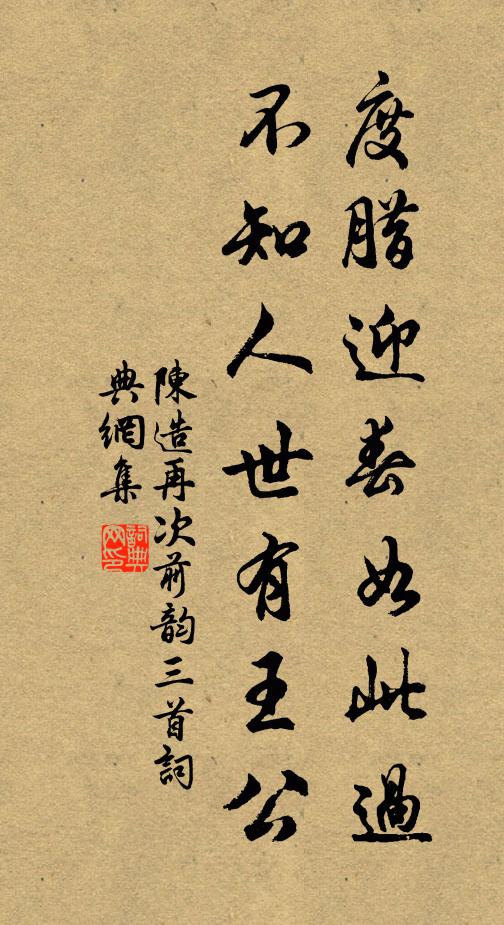 度腊迎春如此過
不知人世有王公
陳造再次前韵三首詞
典網集
詞典網印